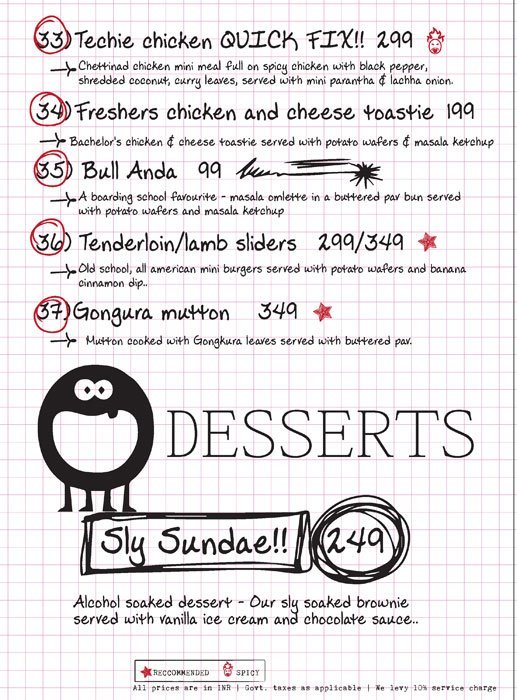 33) Techie chicken QUICK FIX!! 299
Chettinad chicken mini meal full on spicy chicken with black pepper,
shredded coconut, curry leaves, served with mini parantha & lachha onion.
34) Freshers chicken and cheese toastie 199
Bachelor's chicken & cheese toastie served with potato wafers & masala ketchup
35) Bull Anda 99
A boarding school favourite - masala omlette in a buttered pav bun served
with potato wafers and masala ketchup
36) Tenderloin/lamb sliders 299/349
Old school, all american mini burgers served with potato wafers and banana
cinnamon dip..
37) Gongura mutton 349
Mutton cooked with Gongkura leaves served with buttered pav.
DESSERTS
Sly Sundae!! 249
Alcohol soaked dessert - Our sly soaked brownie
served with vanilla ice cream and chocolate sauce..
RECCOMMENDED SPICY
All prices are in INR | Govt. taxes as applicable | We levy 10% service charge